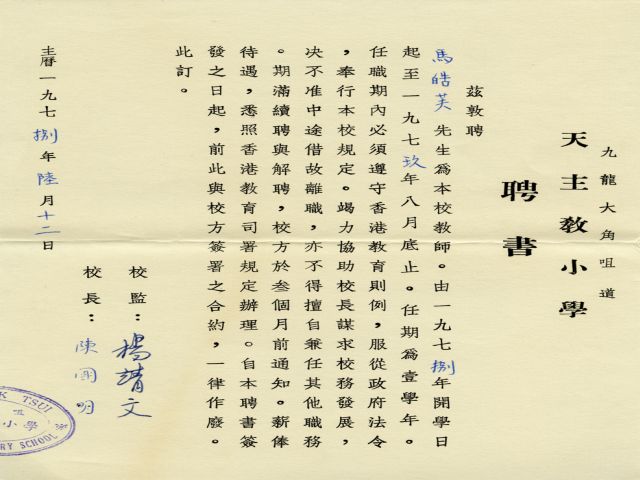 九龍大角咀道
天主教小學
聘書
茲敦聘
馬皓芙先生為本校教師。由一九七捌年開學日
起至一九七玖年八月底止。任期為壹學年。
任職期內必須遵守香港教育則例,服從政府法令
,奉行本校規定。竭力協助校長謀求校務發展,
決不准中途借故離職,亦不得擅自兼任其他職務
。期滿續聘與解聘,校方於叁個月前通知。薪俸
待遇,悉照香港教育司署規定辦理。自本聘書簽
發之日起,前此與校方簽署之合約,一律作廢。
此訂。
校監:楊靖文
校長:陳國明
主曆一九七捌年陸月十二日
K TSUI
咀
小學
RY SCHOOL